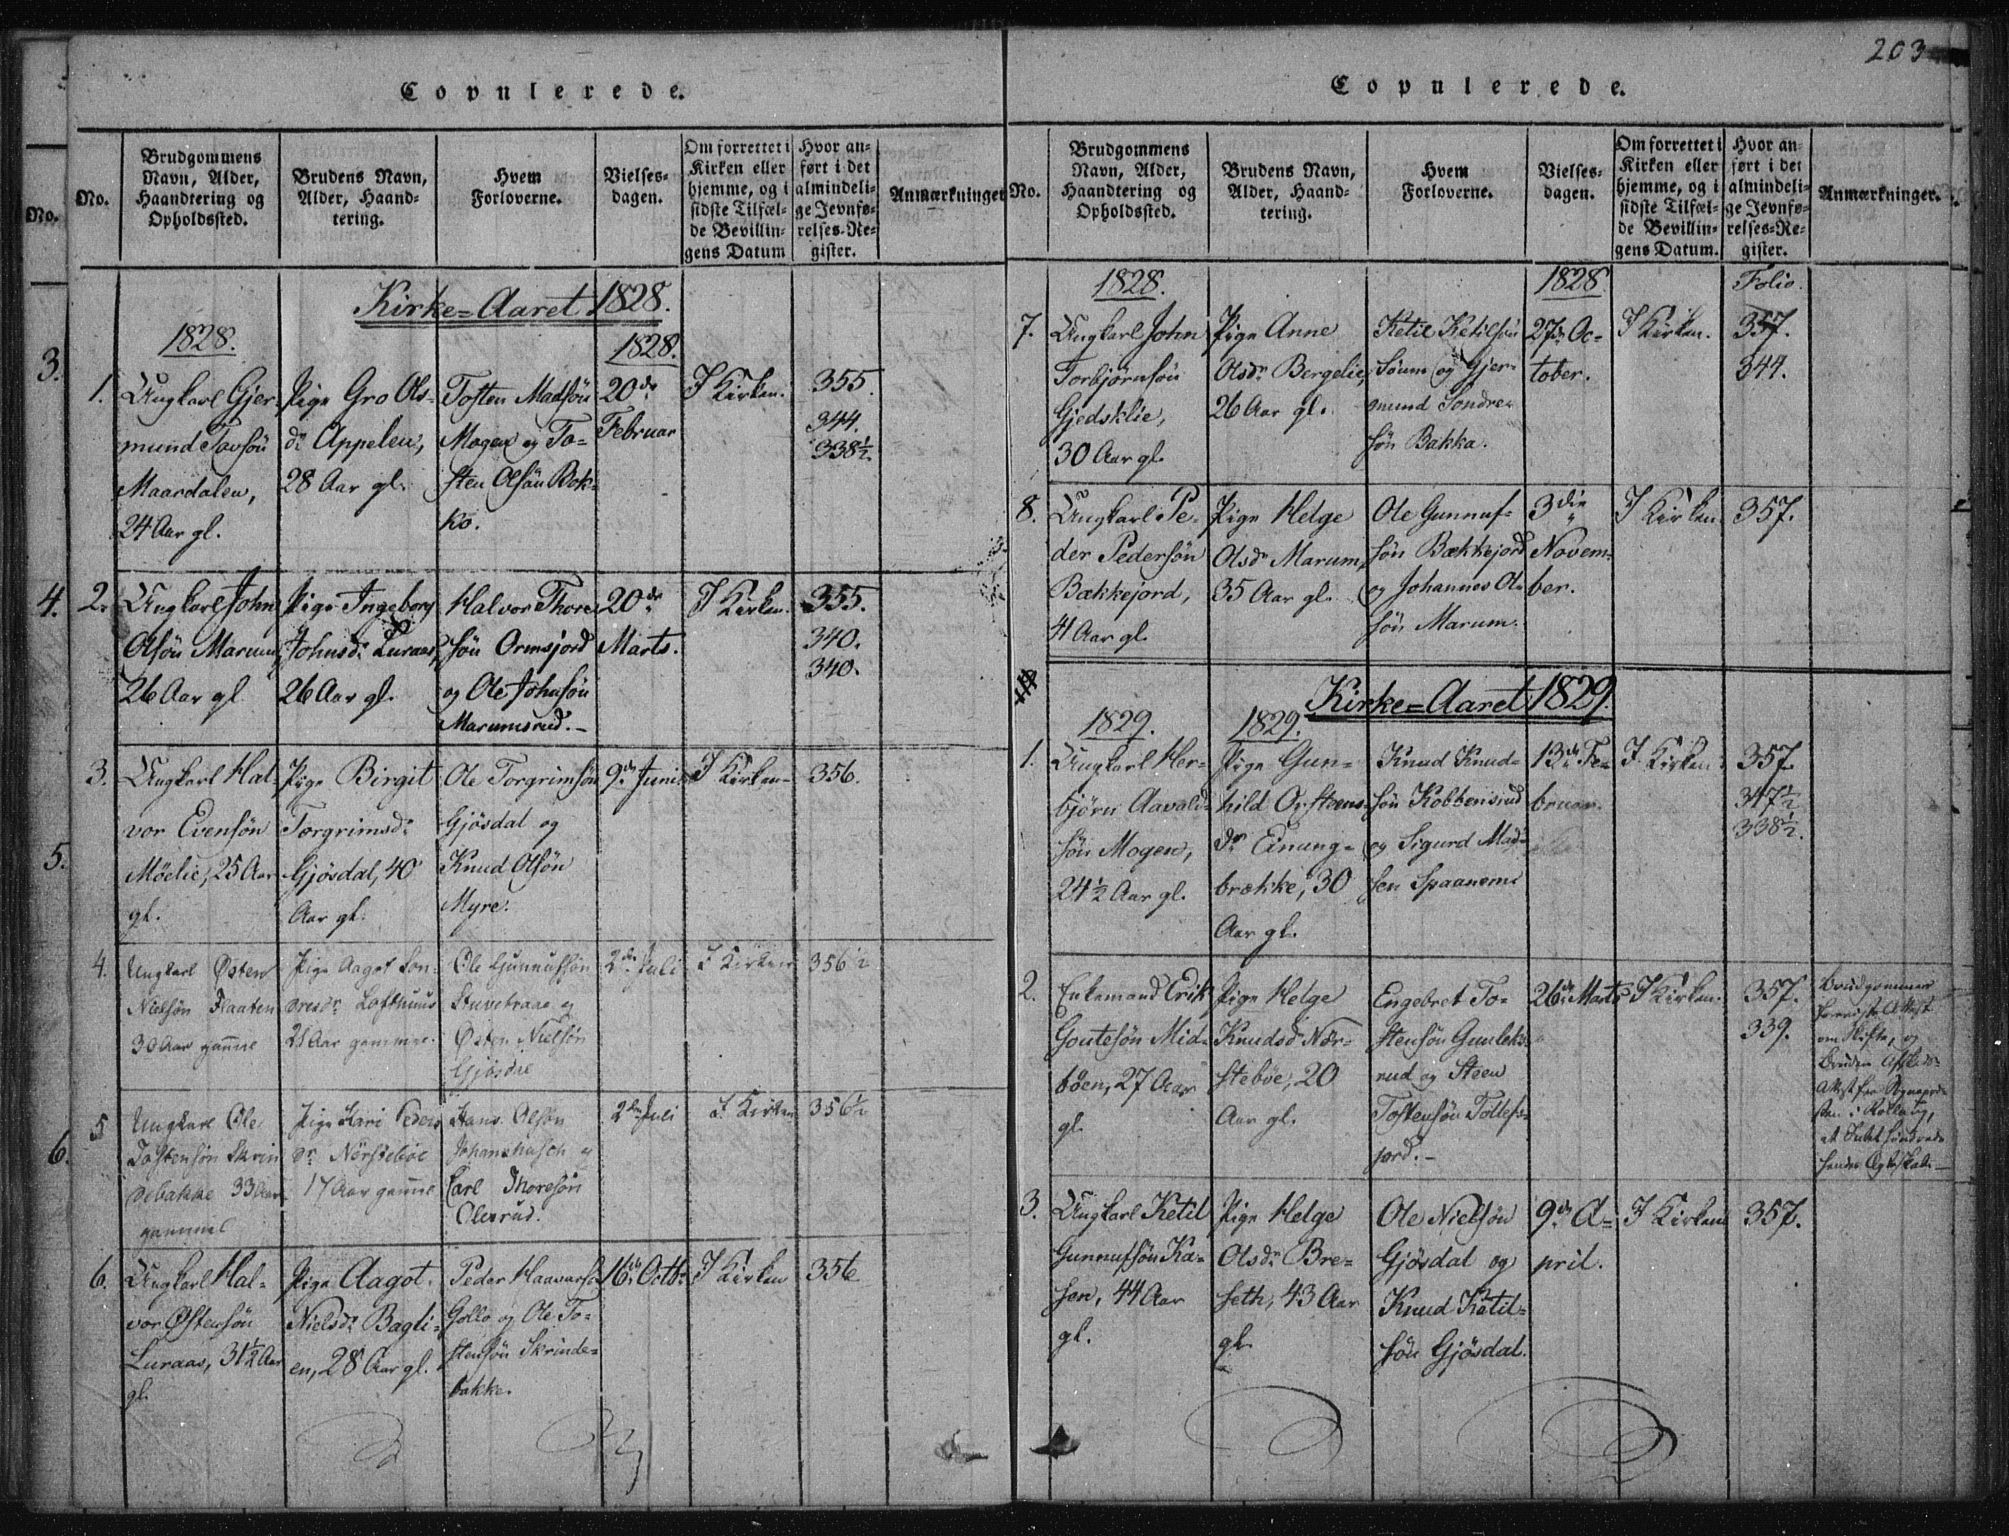 203
Copulerede.
No.
Brudgommens Navn, Alder, Haandtering og Opholdssted.
Brudens Navn, Alder, Haandtering.
Hvem Forloverne.
Vielses-dagen.
Om forrettet i Kirken eller hjemme, og i sidste Tilfælde Bevillingens Datum
Hvor anført i det almindelige Jevnførelses-Register.
Anmærkninger
Kirke-Aaret 1828.
1828.
1828.
1.
Ungkarl Gjer
mund Tovsøn
Maardalen,
24 Aar gl.
Pige Gro Ols-
dr Appelen,
28 Aar gl.
Tosten Madsøn
Mogen og To-
sten Olsøn Bok-
ko.
20de
Februar
I Kirken.
355.
344.
338½.
2.
Ungkarl John
Olsøn Marum,
26 Aar gl
Pige Ingeborg
Johnsdr Luraas,
26 Aar gl.
Halvor Thore
søn Ormsjord
og Ole Johnsøn
Marumsrud.-
20de
Marts.
I Kirken.
355.
340.
340.
3.
Ungkarl Hal
vor Evensøn
Møelie, 25 Aar
gl.
Pige Birgit
Torgrimsdr
Gjøsdal, 40
Aar gl.
Ole Torgrimsøn
Gjøsdal og
Knud Olsøn
Myre.
9de Juni
I Kirken
356.
4.
Ungkarl Østen
Nielsøn Flaaten
30 Aar gamle
Pige Aagot Son-
dresdr Lofthuus
21 Aar gammel.
Ole Gunnufsøn
Stuvetraae og
Østen Nielsøn
Gjøsdle
2den Juli
I Kirken
356½
5
Ungkarl Ole
Tostensøn Skrin
debakke 33 Aar
gammel
Pige Kari Peders
dr Nørstebøe
17 Aar gamle
Hans Olsøn
og
Carl Thoresøn
Olesrud.
2den Juli
I Kirken
356½
6.
Ungkarl Hal-
vor Østensøn
Luraas, 31½ Aar
gl.
Pige Aagot
Nielsdr Bagli-
en, 28 Aar gl.
Peder Haavarsøn
Gollo og Ole To-
stensøn Skrinde-
bakke.
16de Octb.
I Kirken
356
3.
4.
5.
6.
Copulerede.
No.
Brudgommens Navn, Alder, Haandtering og Opholdssted.
Brudens Navn, Alder, Haandtering.
Hvem Forloverne.
Vielses-dagen.
Om forrettet i Kirken eller hjemme, og i sidste Tilfælde Bevillingens Datum.
Hvor anført i det almindelige Jevnførelses-Register.
Anmærkninger.
1828.
1828
Folio.
7.
Ungkarl John
Torbjørnsøn
Gjedsklie,
30 Aar gl.
Pige Anne
Olsdr Bergelie,
26 Aar gl.
Ketil Ketilsøn
Søum og Gjer-
mund Sondre-
søn Bakka.
27de Oc-
tober.
I Kirken.
357.
344.
8.
Ungkarl Pe-
der Pedersøn
Bækkejord,
41 Aar gl.
Pige Helge
Olsdr Marum,
35 Aar gl.
Ole Gunnuf-
søn Bækkejord
og Johannes Ol-
søn Marum.
3die
Novem-
ber.
I Kirken
357.
Kirke-Aaret 1829.
1829.
1829.
1.
Ungkarl Her-
bjørn Aavald-
søn Mogen,
24½ Aar gl.
Pige Gun-
hild Oystens-
dr Einung-
brække, 30
Aar gl.
Knud Knud-
søn Kobbensrud
og Sigurd Mad-
sen Spaanem
13de Fe-
bruar.
I Kirken
357.
347½
338½.
2.
Enkemand Erik
Goutesøn Mid-
bøen, 27 Aar
gl.
Pige Helge
Knudsdr Nør-
stebøe, 20
Aar gl.
Engebret To-
stensøn Gunleks-
rud og Steen
Tostensøn Tollefs-
jord.-
26de Marts
I Kirken.
357.
339.
Brudgommen
foreviste Attest
om Skifte, og
Bruden
Attest fra
i Rollaug,
at Intet hindrede
hendes Ægteskab.-
3.
Ungkarl Ketil
Gunnufsøn Ka-
sen, 44 Aar
gl.
Pige Helge
Olsdr Bre-
seth, 43 Aar
gl.
Ole Nielsøn
Gjøsdal og
Knud Ketil-
søn Gjøsdal.
9de A-
pril.
I Kirken
357.